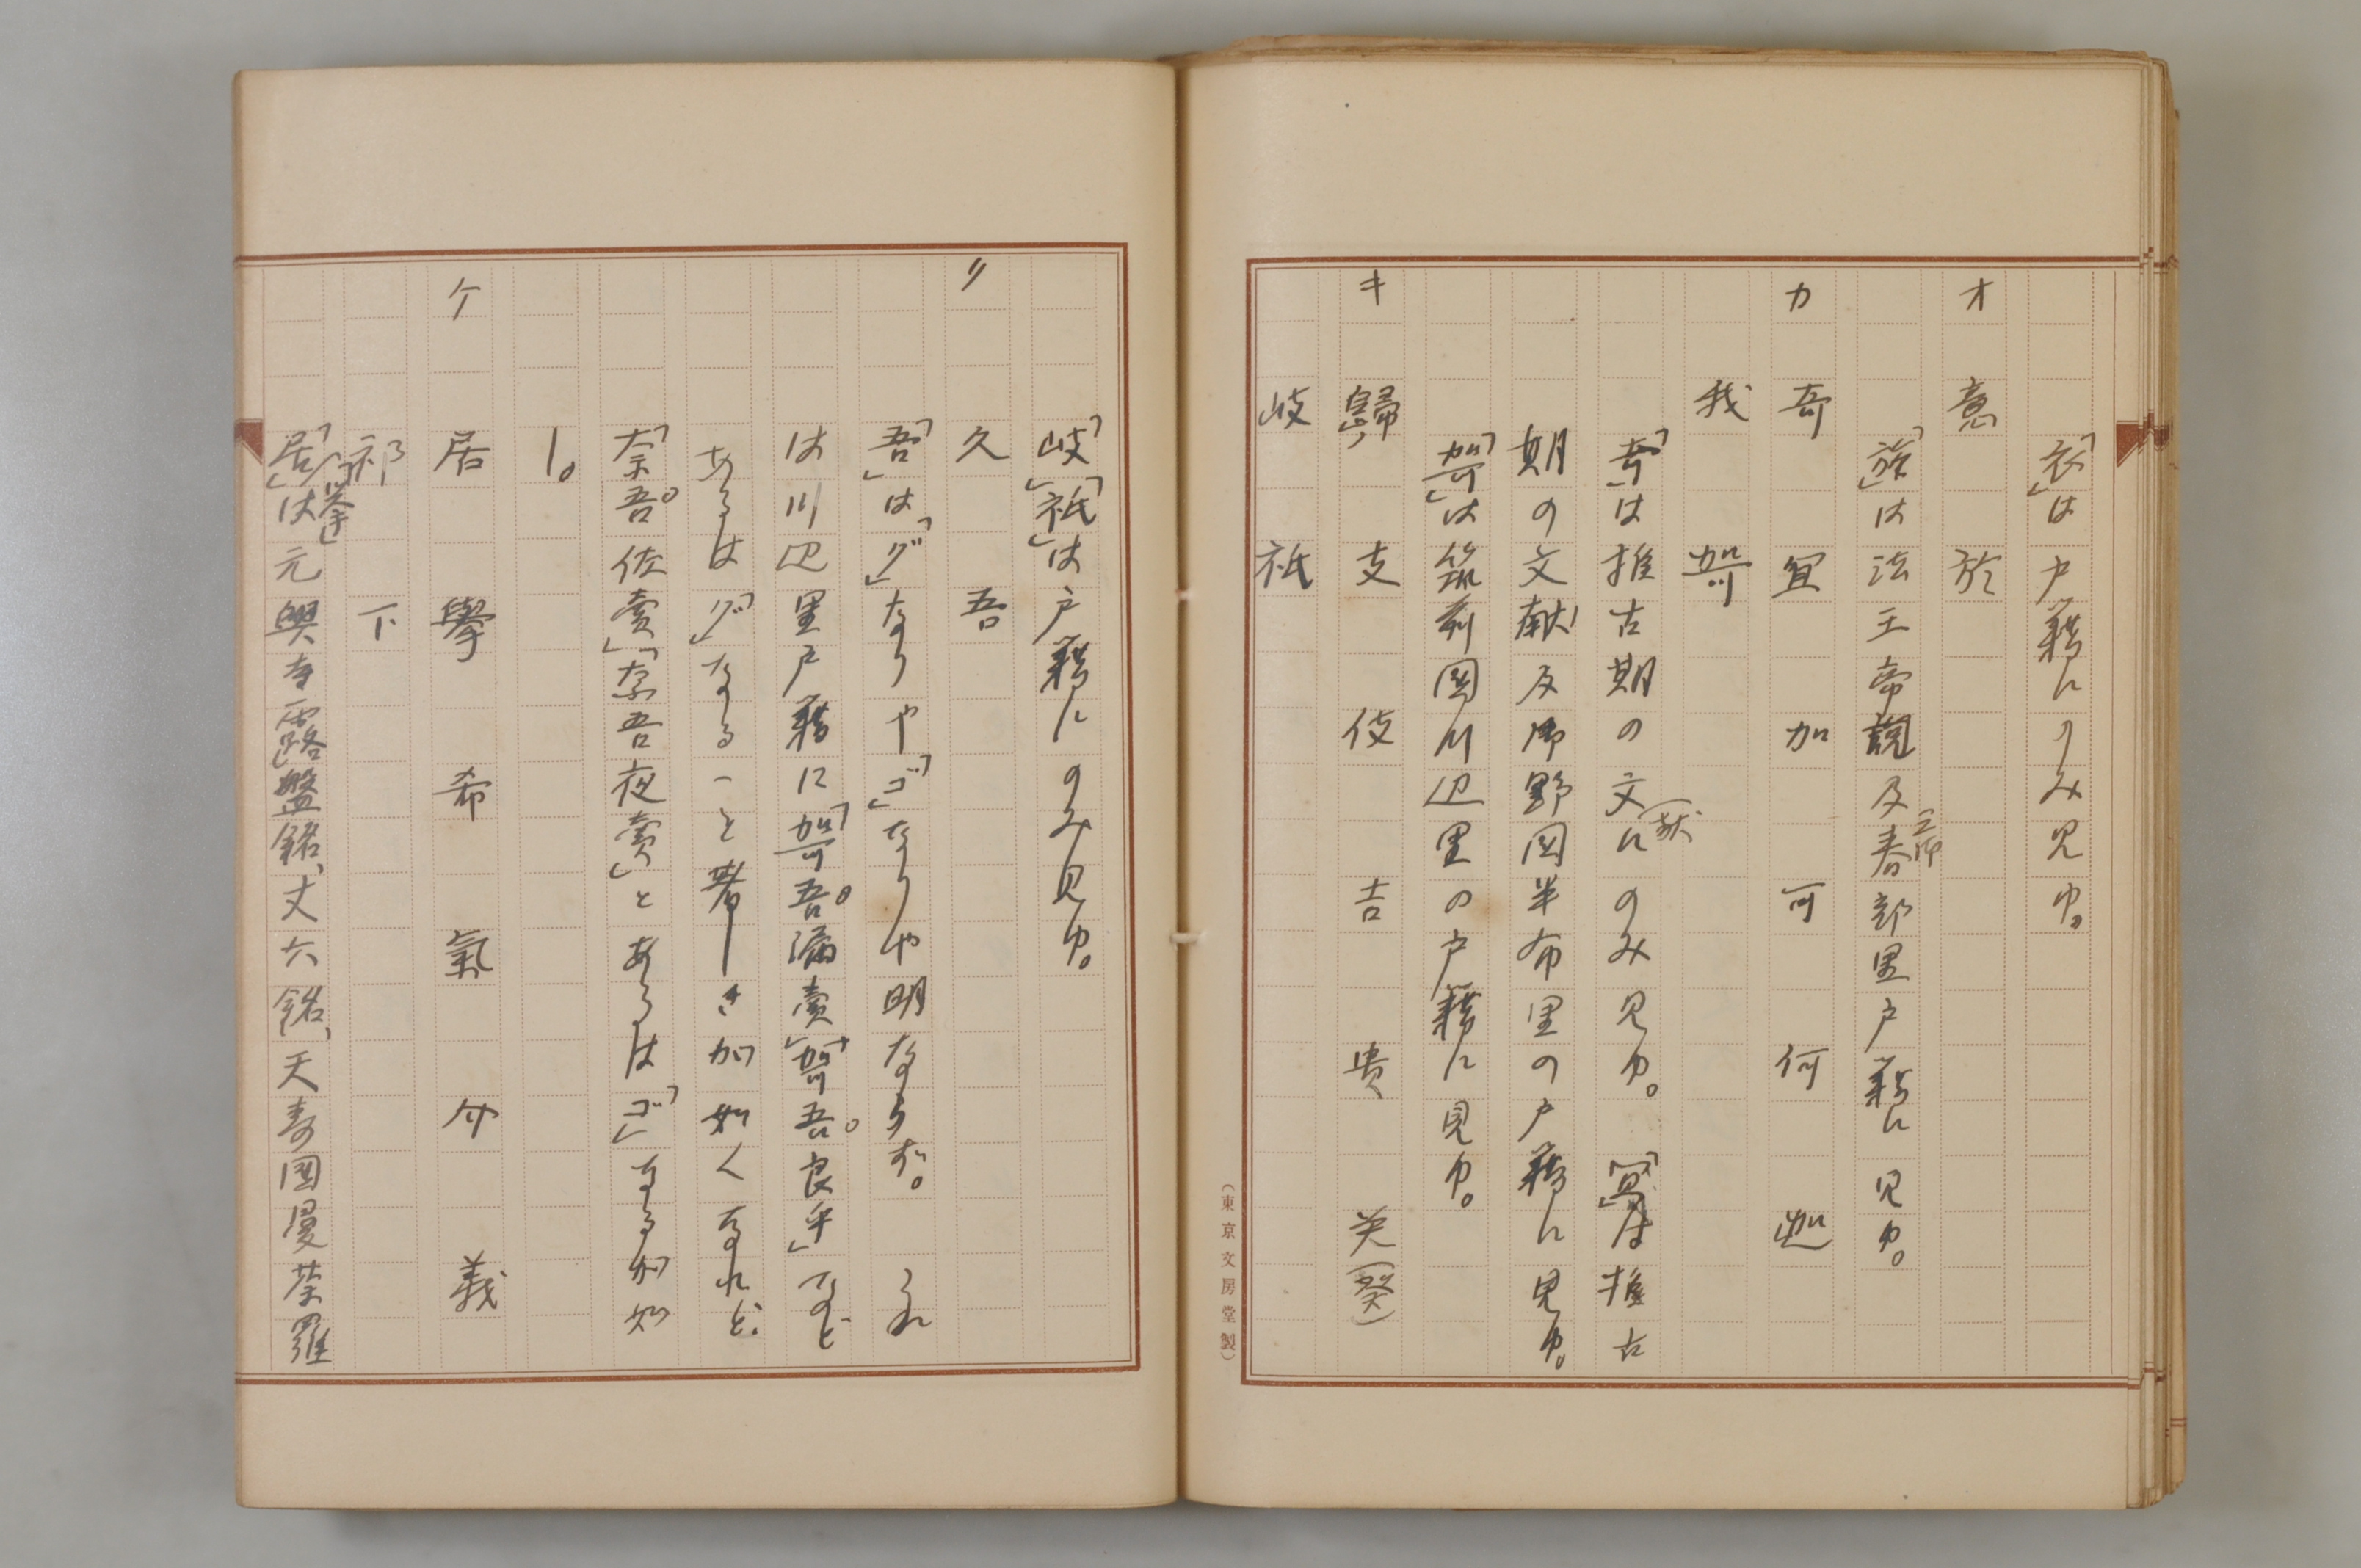 「衣」は戸籍にのみ見ゆ。
オ 意 於
「於」は法王帝説及春部里戸籍に見ゆ。
カ 奇 冝 加 可 何 迦
我 哿
「奇」は推古期の文献にのみ見ゆ。「冝」は推古
期の文献及御野国半布里の戸籍に見ゆ。
「哿」は筑前国川辺里の戸籍に見ゆ。
キ 歸 支 伎 吉 貴 癸(癸)
岐 祇
(東京文房堂製)
「岐」「祇」は戸籍にのみ見ゆ。
ク 久 吾
「吾」は「グ」なりや「ゴ」なりや明ならず。これ
は川辺里戸籍に「哿吾。漏賣」「哿吾。良乎」など
あるは「グ」なること著しきが如くなれど、
「奈吾。佐賣」「奈吾夜賣」とあるは「ゴ」なるが如
し。
ケ 居 擧 希 氣 个 義
祁 下
「居」「挙」は元興寺露盤銘、丈六銘、天寿国曼荼羅